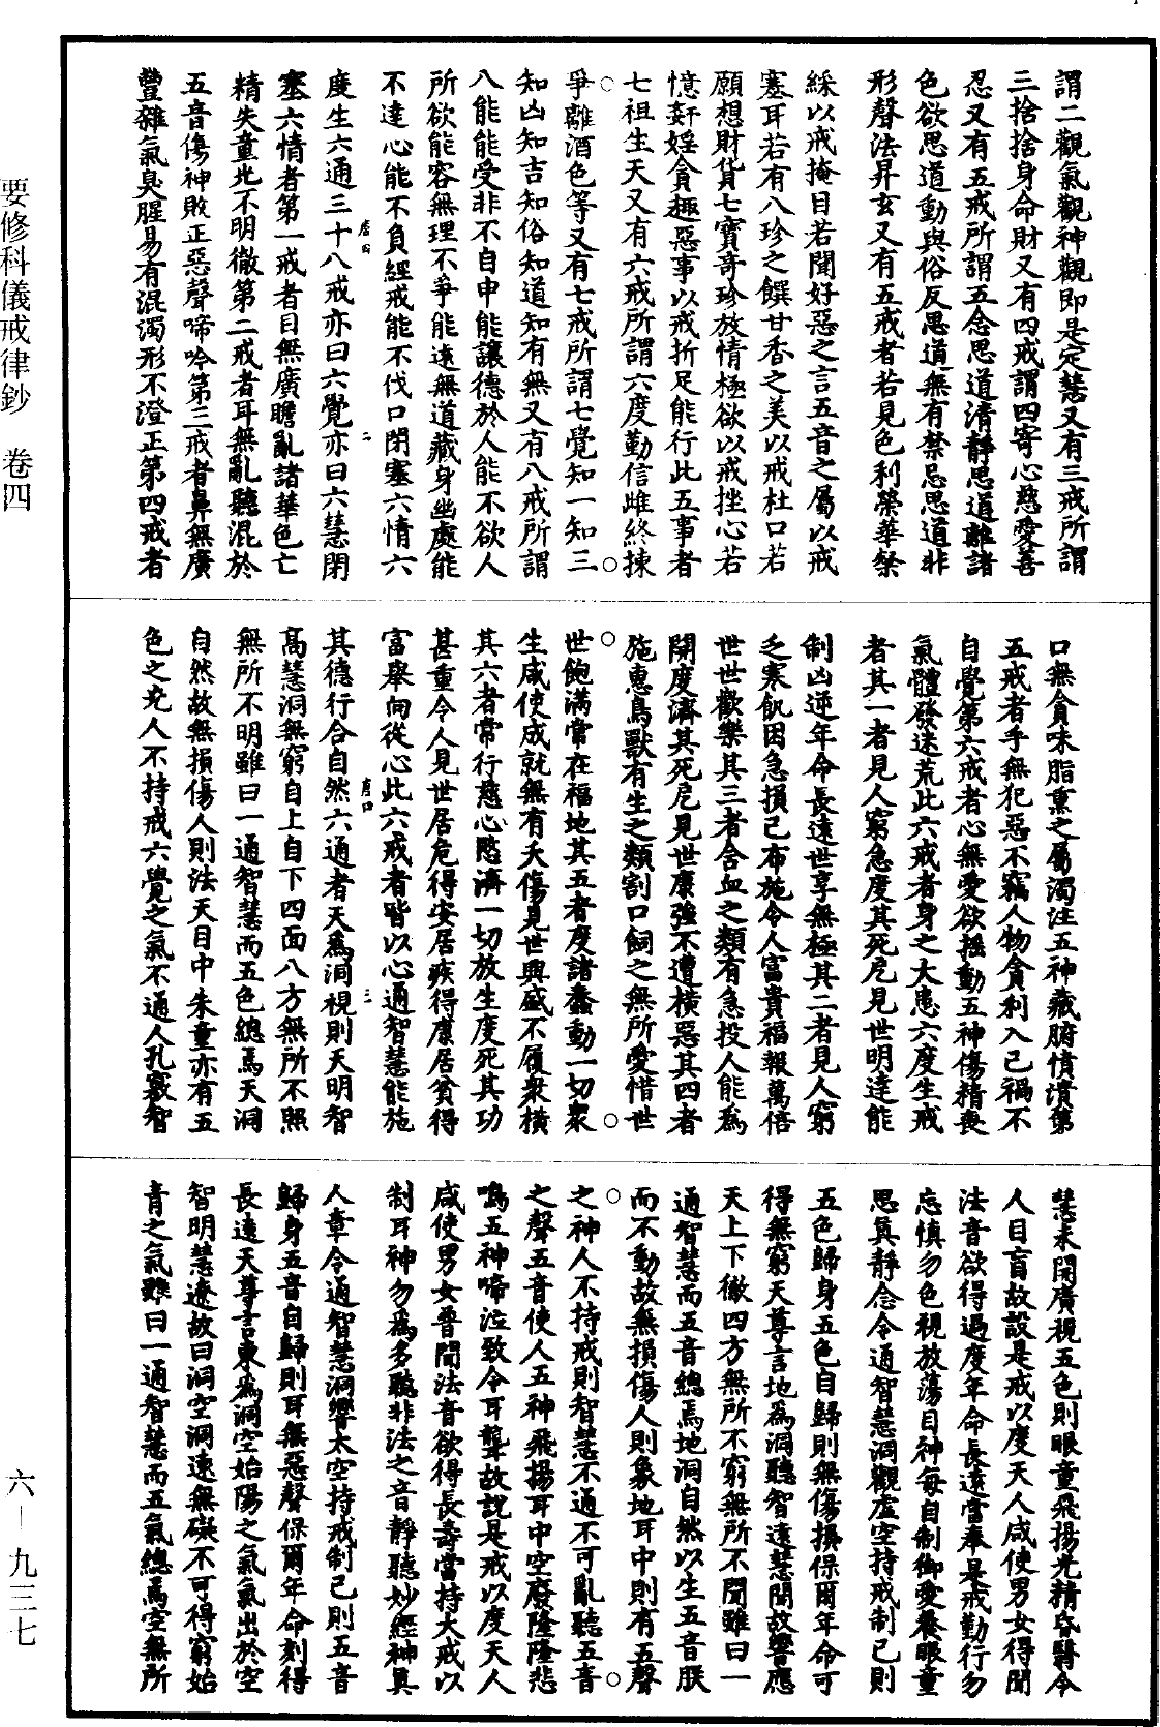 謂二觀氣觀神觀即是定慧又有三戒所謂
三捨捨身命財又有四戒謂四等心慈愛善
忍又有五戒所謂五念思道清靜思道離諸
色欲思道動與俗反思道無有禁忌思道非
形聲法昇玄又有五戒者若見色利榮華榮
綵以戒掩目若聞好惡之言五音之屬以戒
塞耳若有八珍之饌甘香之美以戒杜口若
願想財貨七寶奇珍放情極欲以戒挫心若
憶姧婬貪趣惡事以戒折足能行此五事者
七祖生天又有六戒所謂六度勤信雌終揀
爭離酒色等又有七戒所謂七覺知一知三
知凶知吉知俗知道知有無又有八戒所謂
八能能受非不自申能讓德於人能不欲人
所欲能容無理不爭能遠無道藏身幽處能
不達心能不負經戒能不伐口閉塞六情六
度生六通三十八戒亦曰六覺亦曰六慧閉
塞六情者第一戒者目無廣瞻亂諸華色亡
精失童光不明徹第二戒者耳無亂聽混於
五音傷神敗正惡聲啼吟第三戒者鼻無廣
豐雜氣臭腥易有混濁形不澄正第四戒者
口無貪味脂熏之屬濁注五神藏腑憒潰第
五戒者手無犯惡不竊人物貪利入己禍不
自覺第六戒者心無愛欲搖動五神傷精喪
氣體發迷荒此六戒者身之大患六度生戒
者其一者見人窮急度其死厄見世明達能
制凶逆年命長遠世享無極其二者見人窮
乏寒飢因急損己布施令人富貴福報萬倍
世世歡樂其三者含血之類有急投人能為
開度濟其死厄見世康強不遭橫惡其四者
施惠鳥獸有生之類割口飼之無所愛惜世
世飽滿常在福地其五者度諸蠢動一切衆
生咸使成就無有夭傷見世興盛不履衆橫
其六者常行慈心愍濟一切放生度死其功
甚重令人見世居危得安居疾得康居貧得
富舉向從心此六戒者皆以心通智慧能施
其德行合自然六通者天為洞視則天明智
高慧洞無窮自上自下四面八方無所不照
無所不明雖曰一通智慧而五色總焉天洞
自然故無損傷人則法天目中朱童亦有五
色之光人不持戒六覺之氣不通人孔竅智
慧未開廣視五色則眼童飛揚光精昏翳令
人目盲故設是戒以度天人咸使男女得聞
法音欲得過度年命長遠當奉是戒勤行勿
忘慎勿色視放蕩目神每自制御愛養眼童
思真靜念令通智慧洞觀虛空持戒制已則
五色歸身五色自歸則無傷損保爾年命可
得無窮天尊言地為洞聽智遠慧聞故響應
天上下徹四方無所不窮無所不聞雖曰一
通智慧而五音總焉地洞自然以生五音朕
而不動故無損傷人則象地耳中則有五聲
之神人不持戒則智慧不通不可亂聽五音
之聲五音使人五神飛揚耳中空廢隆隆悲
鳴五神啼泣致令耳聾故說是戒以度天人
咸使男女普聞法音欲得長壽當持大戒以
制耳神勿為多聽非法之音靜聽妙經神真
人章令通智慧洞響太空持戒制己則五音
歸身五音自歸則耳無惡聲保爾年命刻得
長遠天尊言東為洞空始陽之氣氣出於空
智明慧遼故曰洞空洞遠無礙不可得窮始
青之氣雖曰一通智慧而五氣總焉空無所
要修科儀戒律鈔 卷四
六—九三七